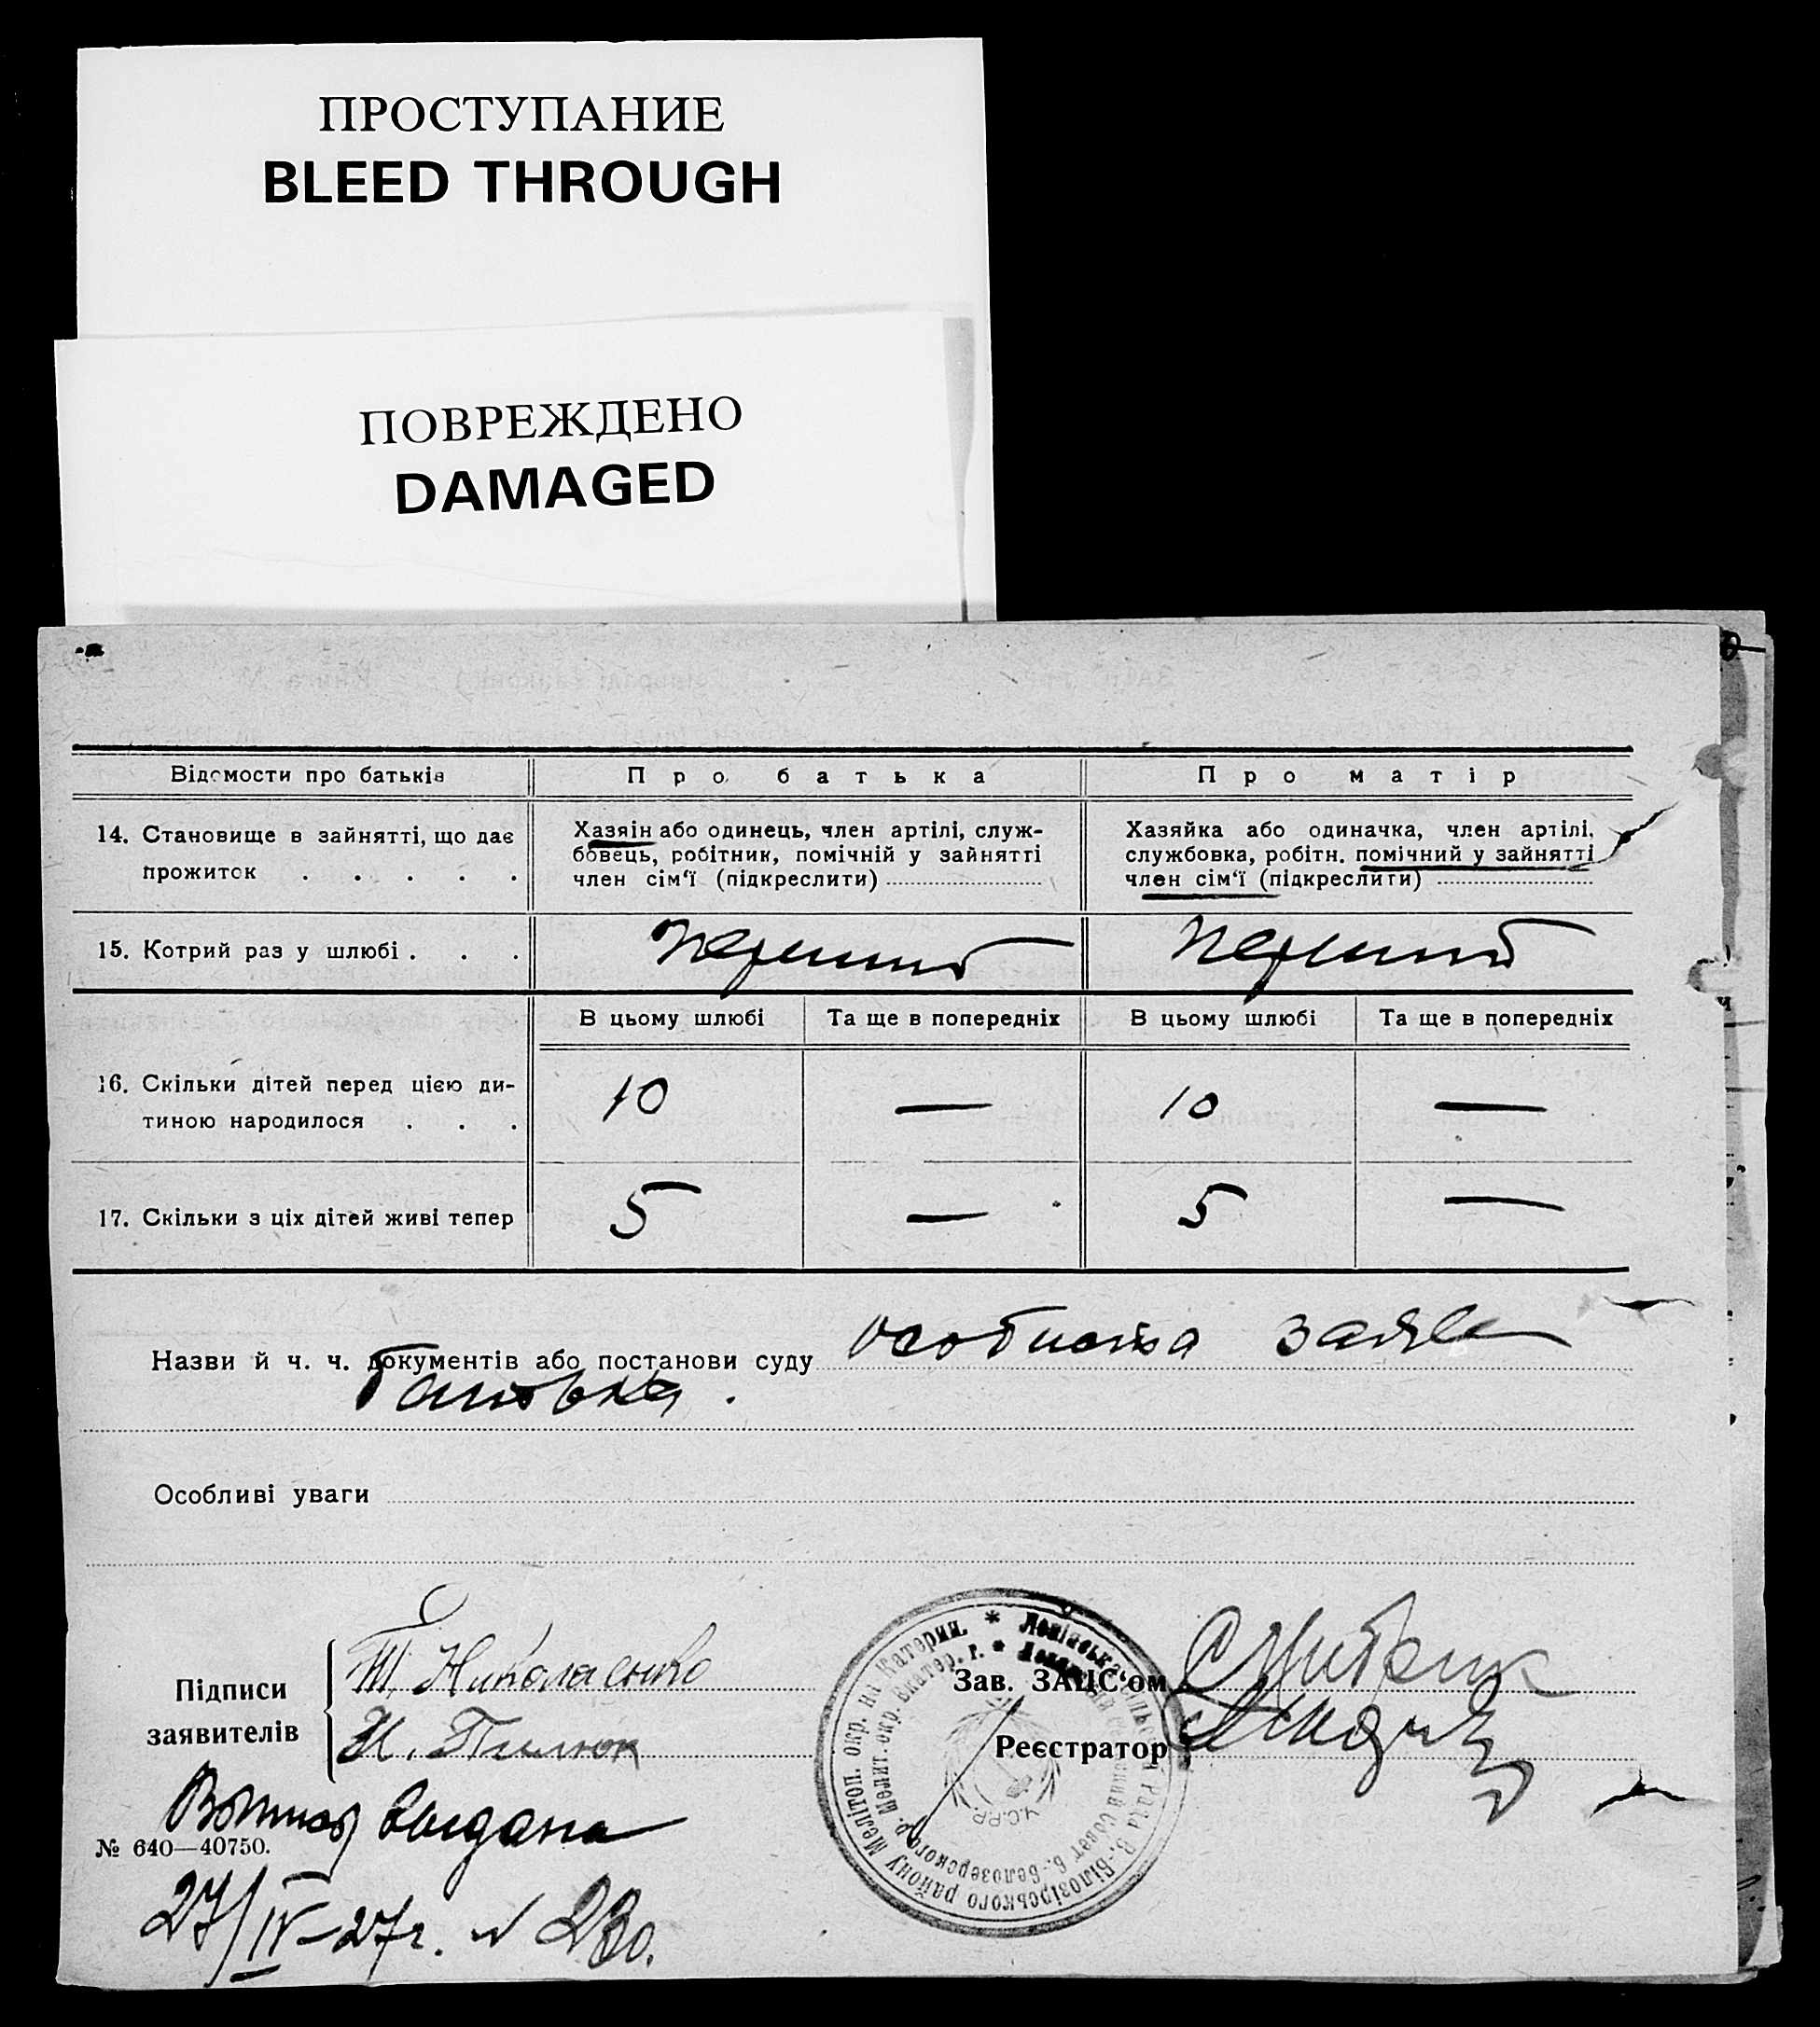 ПРОСТУПАНИЕ
BLEED THROUGH
ПОВРЕЖДЕНО
DAMAGED
Відомости про батьків
Про батька
Про матір
14. Становище в зайнятті, що дає
прожиток . . . . .
Хазяін або одинець, член артілі, служ-
бовець, робітник, помічній у зайнятті
член сім‘ї (підкреслити)
Хазяйка або одиначка, член артілі,
службовка, робітн. помічний у зайнятті
член сім‘ї (підкреслити)
15. Котрий раз у шлюбі . . .
перший
перший
В цьому шлюбі
Та ще в попередніх
В цьому шлюбі
Та ще в попередніх
16. Скільки дітей перед цією ди-
тиною народилося . . .
10
—
10
—
17. Скільки з ціх дітей живі тепер
5
—
5
—
Назви й ч. ч. документів або постанови суду особиста заява
батька.
Особливі уваги
Підписи
заявителів
Т. Николаенко
Зав. ЗАЦС‘ом
Реєстратор
Ленінська сільська Рада В.-Білозірського району Мелітоп. окр. на Катерин. *
совет В.-Белозерского р. Мелит. окр. Екатер. г. *
У.С.Р.Р.
Выпись выдана
№ 640—40750.
27/IV-27г. № 230.